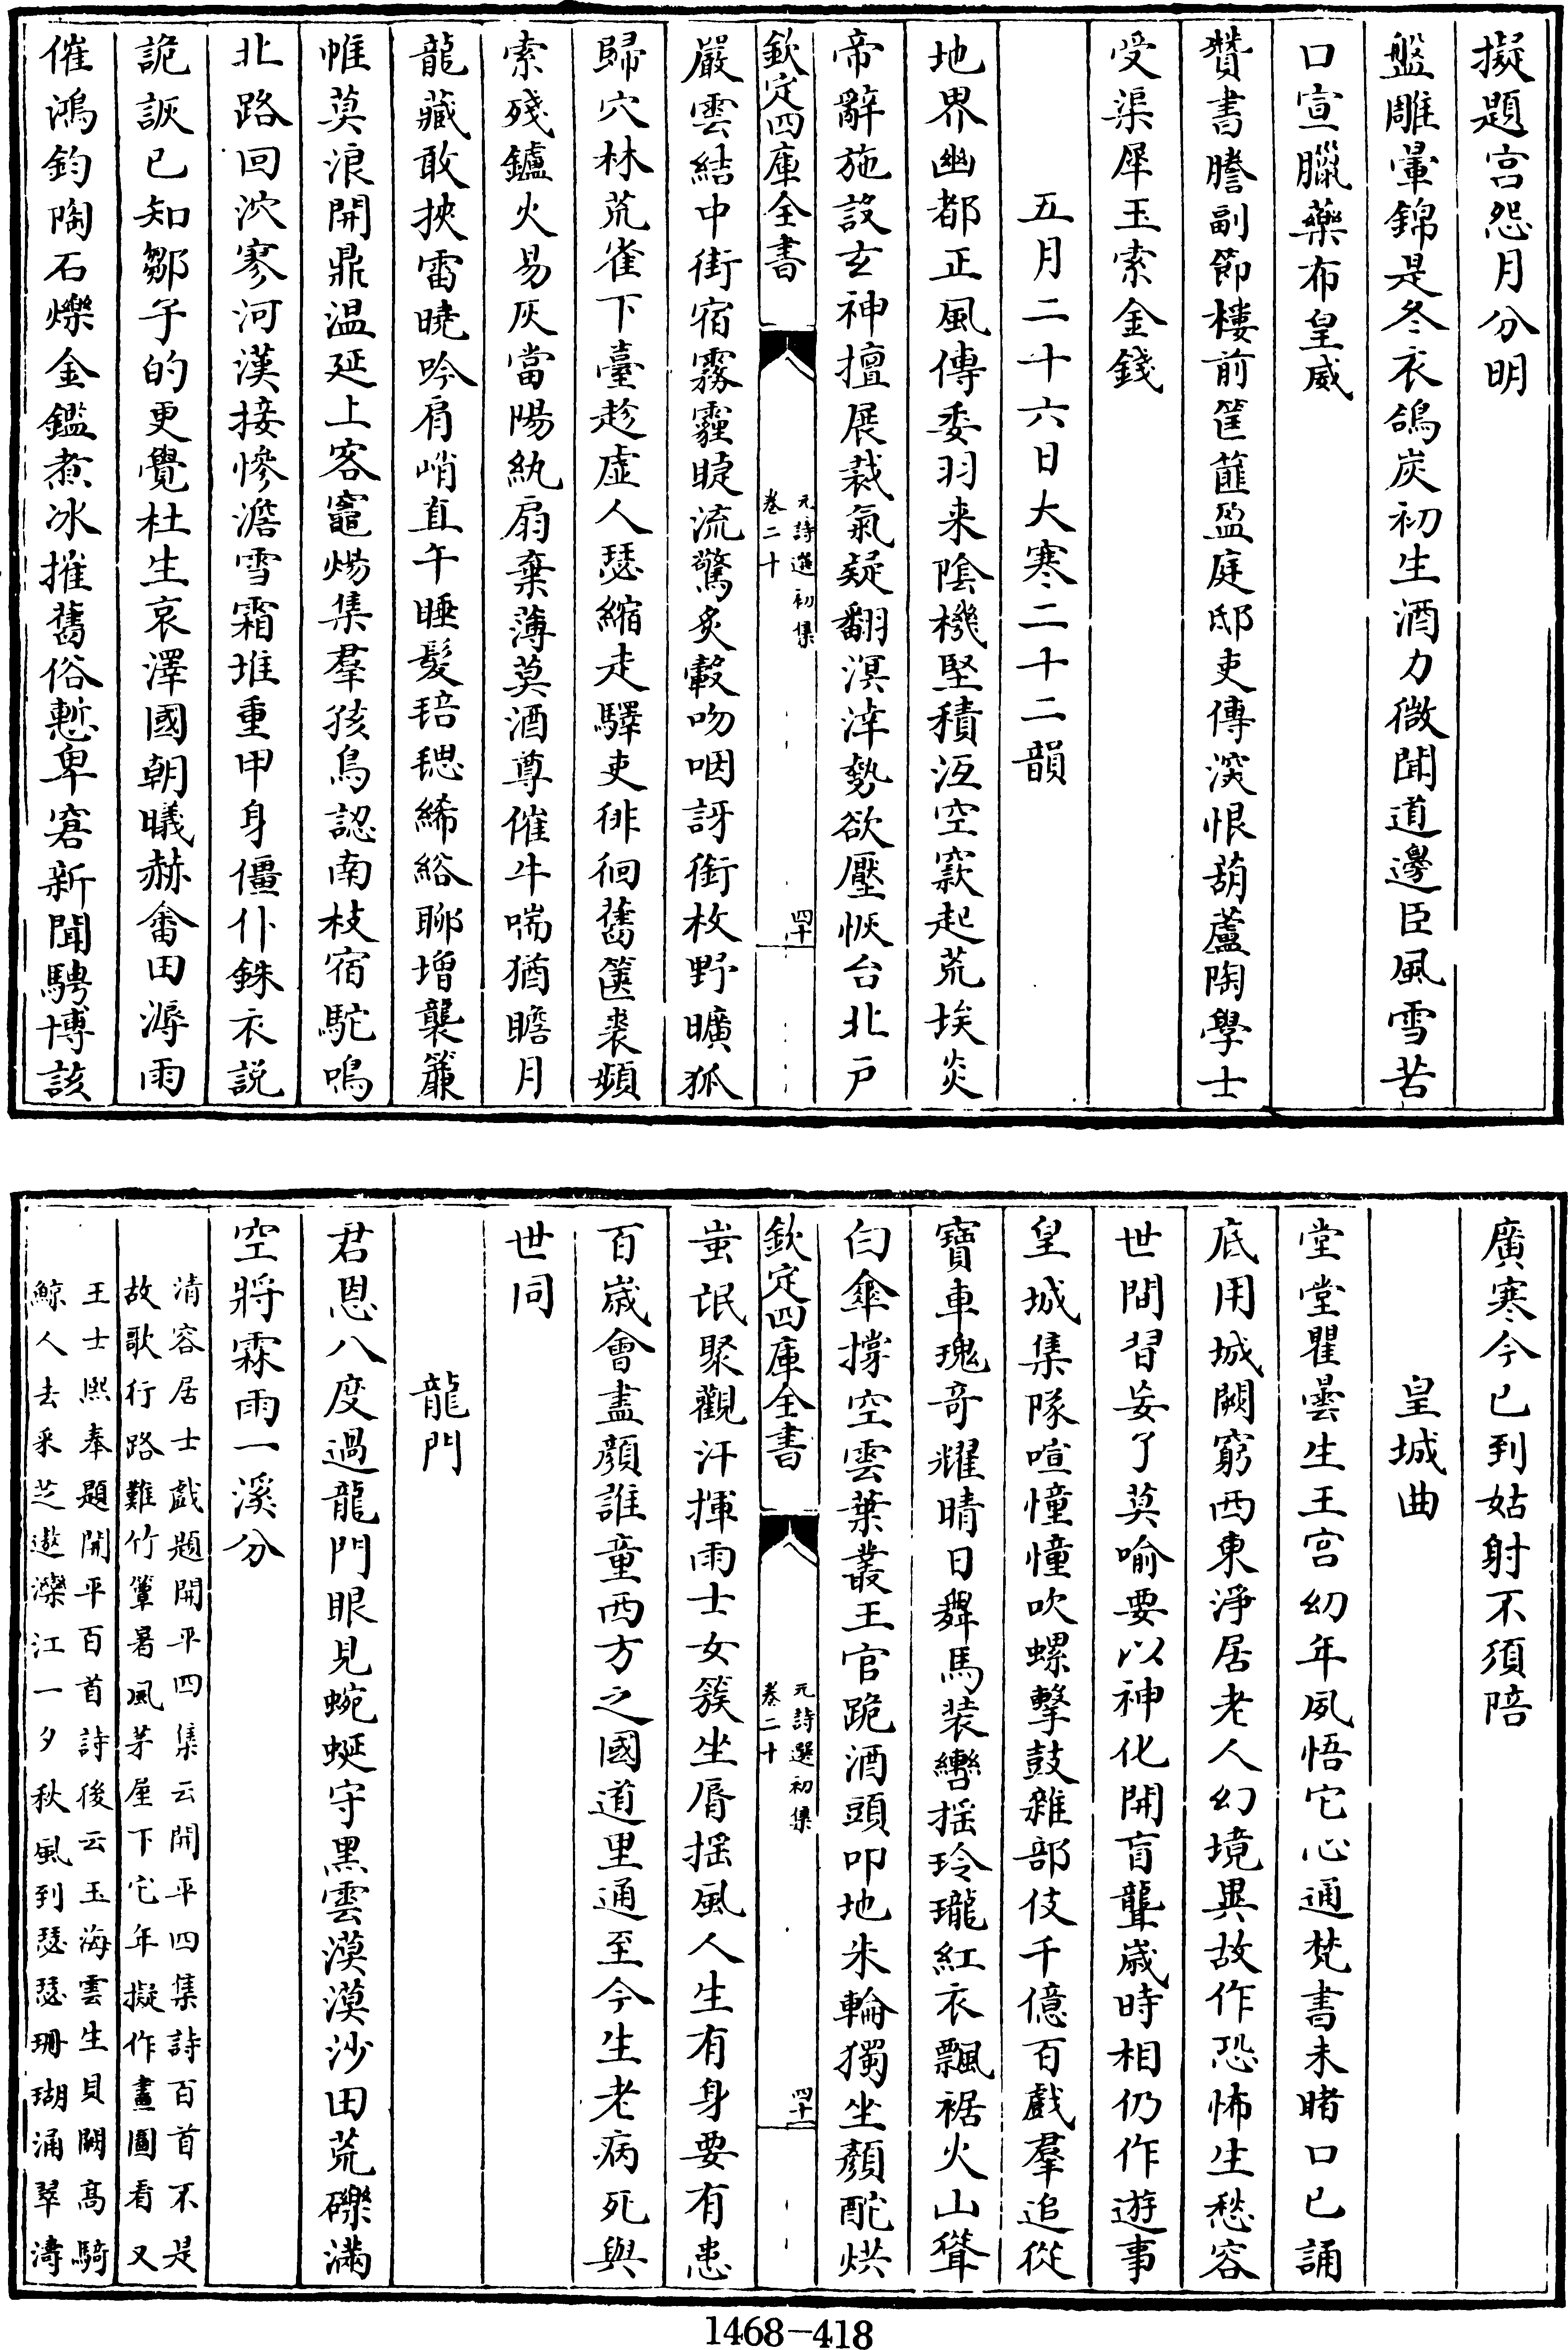 擬題宮怨月分明
盤雕暈錦是冬衣鴿炭初生酒力微聞道邊臣風雪苦
口宣臘藥布皇威
贊書謄副節樓前筐篚盈庭邸吏傳深恨葫蘆陶學士
受渠犀玉索金錢
五月二十六日大寒二十二韻
地界幽都正風傳委羽来陰機堅積沍空窾起荒埃炎
帝辭施設玄神擅展裁氣疑翻溟涬勢欲壓恢台北戸
欽定四庫全書
元詩選初集
卷二十
四十
嚴雲結中街宿霧霾睫流驚炙轂吻咽訝銜枚野曠狐
歸穴林荒雀下臺趁虚人瑟縮走驛吏徘徊舊篋裘頻
索殘鑪火易灰當陽紈扇棄薄莫酒尊催牛喘猶瞻月
龍藏敢挾雷曉吟肩峭直午睡髮𣯶毸絺綌聊增襲簾
帷莫浪開鼎温延上客竈煬集羣孩鳥認南枝宿駝鳴
北路回泬寥河漢接慘澹雪霜堆重甲身僵仆銖衣説
詭詼已知鄒子的更覺杜生哀澤國朝曦赫畬田溽雨
催鴻鈞陶石爍金鑑煮冰摧舊俗慙卑窘新聞騁博該
廣寒今已到姑射不須陪
皇城曲
堂堂瞿曇生王宫幼年夙悟它心通梵書未睹口已誦
底用城闕窮西東淨居老人幻境異故作恐怖生愁容
世間習妄了莫喻要以神化開盲聾嵗時相仍作遊事
皇城集隊喧憧憧吹螺擊鼓雜部伎千億百戲羣追從
寶車瑰奇耀晴日舞馬装轡揺玲瓏紅衣飄裾火山聳
白傘撐空雲葉叢王官跪酒頭叩地朱輪獨坐顔酡烘
欽定四庫全書
元詩選初集
卷二十
四十一
蚩氓聚觀汗揮雨士女簇坐脣揺風人生有身要有患
百嵗會盡顔誰童西方之國道里通至今生老病死與
世同
龍門
君恩八度過龍門眼見蜿蜒守黑雲漠漠沙田荒礫滿
空將霖雨一溪分
清容居士戯題開平四集云開平四集詩百首不是
故歌行路難竹簟暑風茅屋下它年擬作畫圖看又
王士熙奉題開平百首詩後云玉海雲生貝闕髙騎
鯨人去采芝遨灤江一夕秋風到瑟瑟珊瑚涌翠濤
1468—418